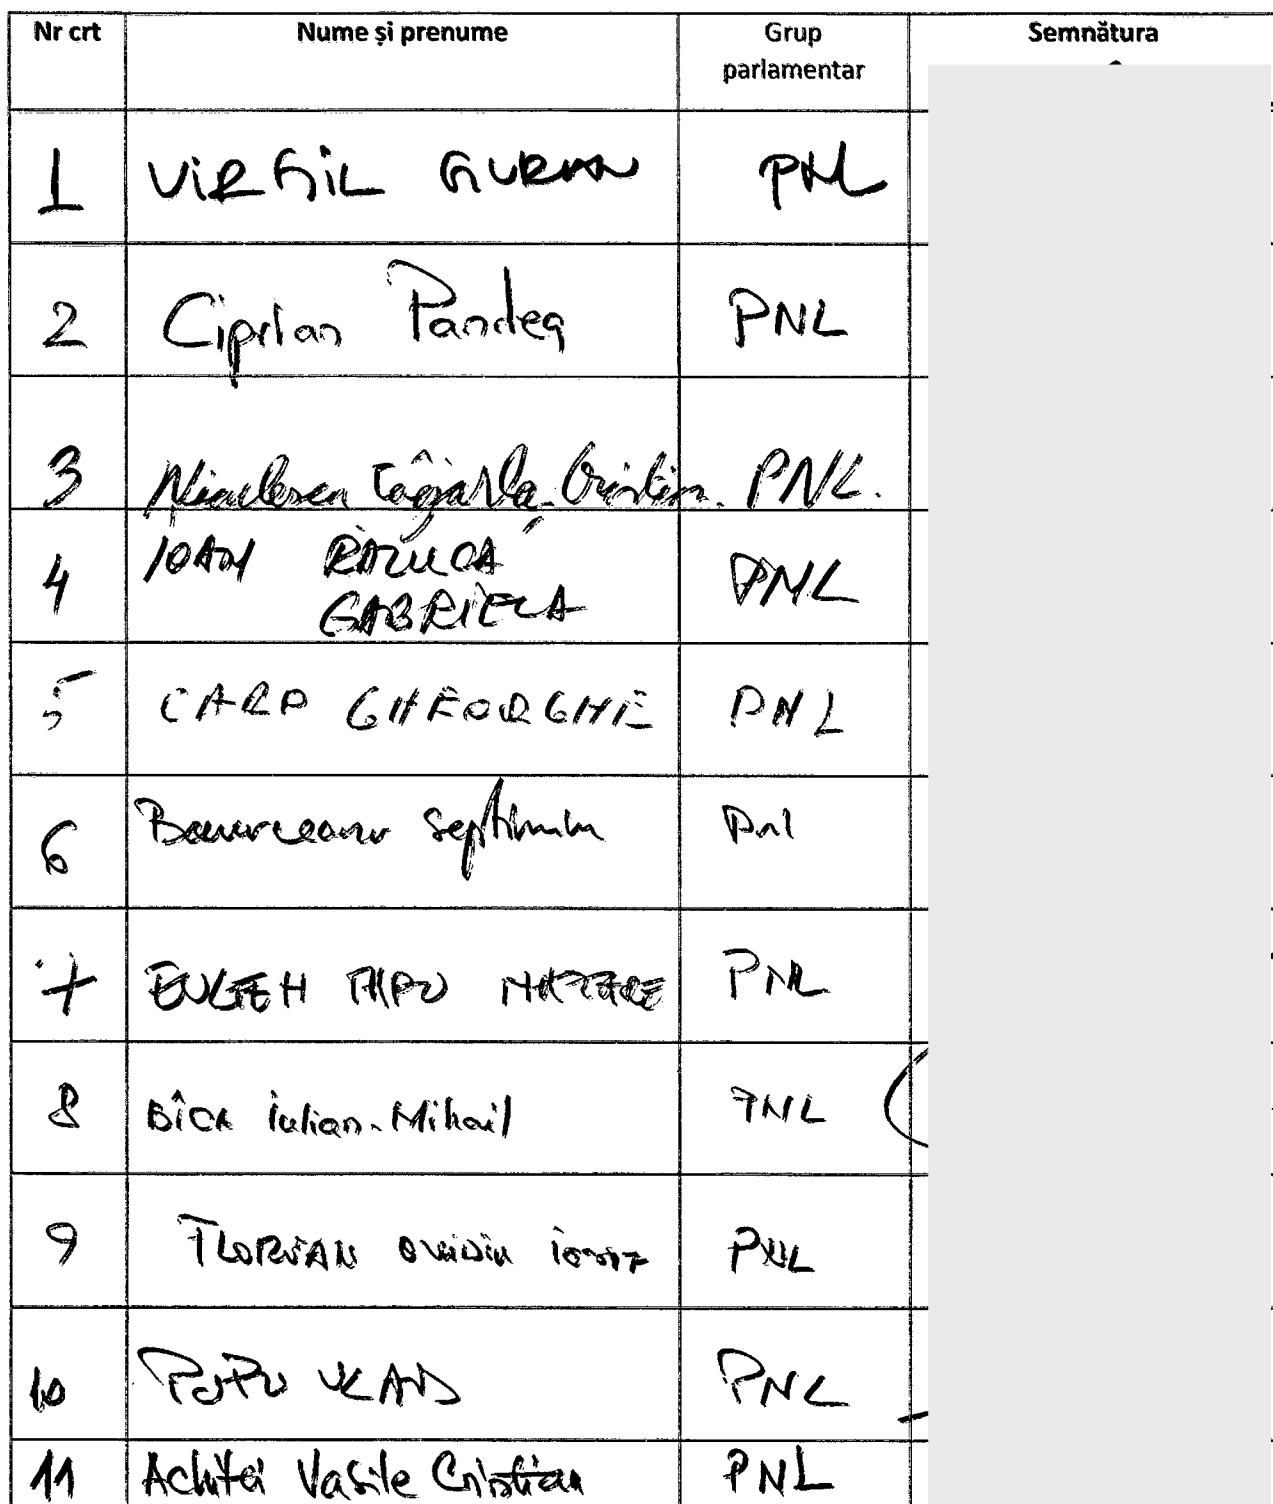 Nr crt Nume și prenume Grup Semnătura
parlamentar
1 VIRGIL GURAN PNL
2 Ciprian Pandea PNL
3 Niculescu Țâgârlaș Cristian PNL.
4 IOAN RALUCA PNL
GABRIELA
5 CARP GHEORGHE PNL
6 Bourceanu Septimiu Pnl
7 EUGEN NAZARE PNL
8 BÎCA Iulian-Mihail PNL
9 FLORIAN OVIDIU IOSIF PNL
10 POPU VLAD PNL
11 Achiței Vasile Cristian PNL